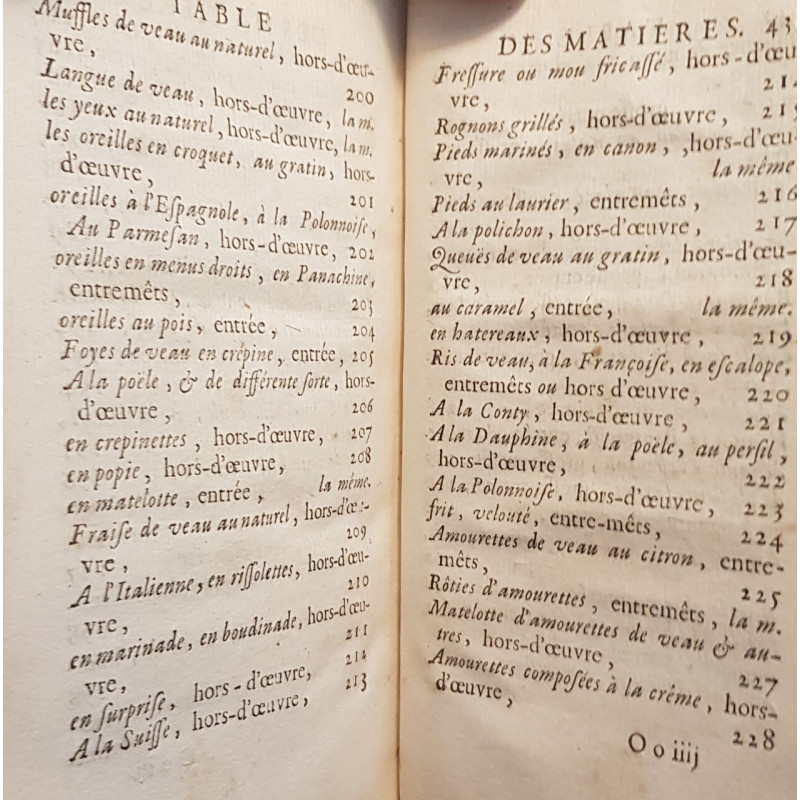 TABLE
Muffles de veau au naturel, hors-d'œu-
vre, 200
Langue de veau, hors-d'œuvre, la m.
les yeux au naturel, hors-d'œuvre, la m.
les oreilles en croquet, au gratin, hors-
d'œuvre, 201
oreilles à l'Eſpagnole, à la Polonnoiſe,
Au Parmeſan, hors-d'œuvre, 202
oreilles en menus droits, en Panachine,
entremêts, 203
oreilles au pois, entrée, 204
Foyes de veau en crépine, entrée, 205
A la poële, & de différente ſorte, hors-
d'œuvre, 206
en crepinettes, hors-d'œuvre, 207
en popie, hors-d'œuvre, 208
en matelotte, entrée, la même.
Fraiſe de veau au naturel, hors-d'œu-
vre, 209
A l'Italienne, en riſſolettes, hors-d'œu-
vre, 210
en marinade, en boudinade, hors-d'œu-
vre, 211
en ſurpriſe, hors-d'œuvre, 212
A la Suiſſe, hors-d'œuvre, 213
DES MATIERES. 43
Freſſure ou mou fricaſſé, hors-d'œu
vre, 214
Rognons grillés, hors-d'œuvre, 215
Pieds marinés, en canon, ,hors-d'œu-
vre, la même
Pieds au laurier, entremêts, 216
A la polichon, hors-d'œuvre, 217
Queuës de veau au gratin, hors-d'œu-
vre, 218
au caramel, entrée, la même.
en hatereaux, hors-d'œuvre, 219
Ris de veau, à la Françoiſe, en eſcalope,
entremêts ou hors d'œuvre, 220
A la Conty, hors-d'œuvre, 221
A la Dauphine, à la poële, au perſil,
hors-d'œuvre, 222
A la Polonnoiſe, hors-d'œuvre, 223
frit, velouté, entre-mêts, 224
Amourettes de veau au citron, entre-
mêts, 225
Rôties d'amourettes, entremêts, la m.
Matelotte d'amourettes de veau & au-
tres, hors-d'œuvre, 227
Amourettes compoſées à la crême, hors-
d'œuvre, 228
O o iiij